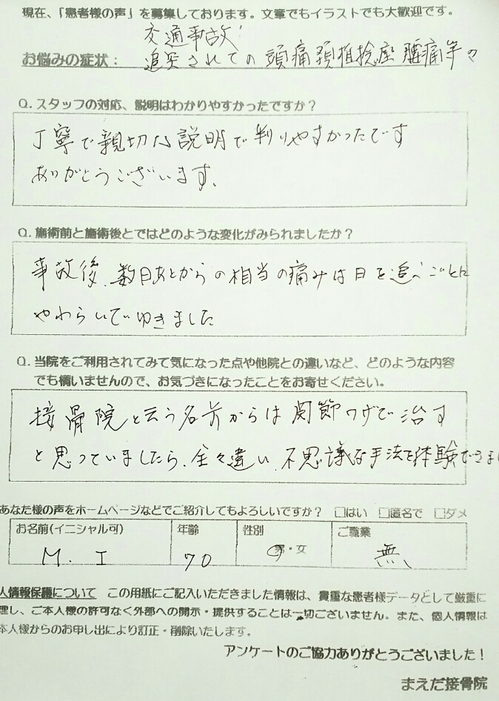 現在、「患者様の声」を募集しております。文章でもイラストでも大歓迎です。
交通事故
お悩みの症状： 追突されての頭痛頚椎捻座腫痛等々
Q. スタッフの対応、説明はわかりやすかったですか？
丁寧で親切な説明で判りやすかったです
ありがとうございます、
Q. 施術前と施術後とではどのような変化がみられましたか？
事故後、数日あとからの相当の痛みは日を追うごとに
やわらいでゆきました
Q. 当院をご利用されてみて気になった点や他院との違いなど、どのような内容
でも構いませんので、お気づきになったことをお寄せください。
接骨院と云う名前からは関節ワザで治す
と思っていましたら、全々違い、不思議な手法を体験できま
あなた様の声をホームページなどでご紹介してもよろしいですか？ □はい □匿名で □ダメ
お名前(イニシャル可) 年齢 性別 ご職業
M. I 70 男・女 無、
人情報保護について この用紙にご記入いただきました情報は、貴重な患者様データとして厳重に
理し、ご本人様の許可なく外部への開示・提供することは一切ございません。また、個人情報は
本人様からのお申し出により訂正・削除いたします。
アンケートのご協力ありがとうございました！
まえだ接骨院